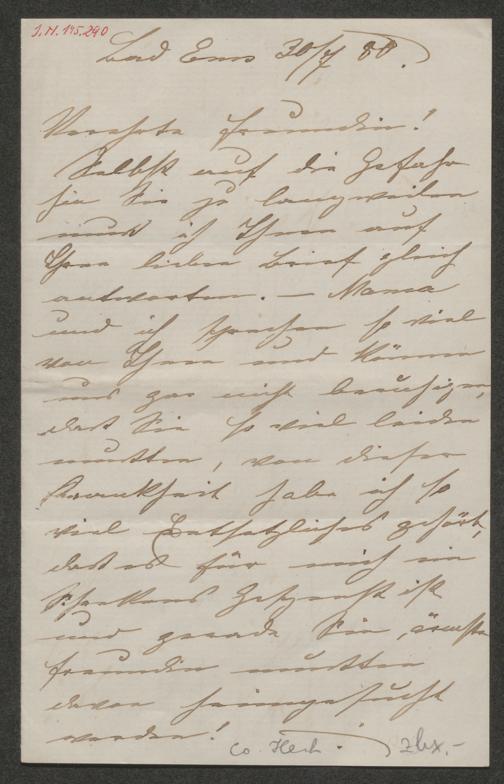 J.N. 195.240
Bad Ems 30/7 80.
Verehrte Freundin!
Selbst auf die Gefahr
hin Sie zu langweilen
muß ich Ihnen auf
Ihren lieben Brief gleich
antworten. — Mama
und ich sprechen so viel
von Ihnen und können
uns gar nicht beruhigen,
daß Sie so viel leiden
mußten, von dieser
Krankheit habe ich so
viel Entsetzliches gehört,
daß es für mich ein
Schreckens Gespenst ist
und gerade Sie, ärmste
Freundin mußten
davon heimgesucht
werden!